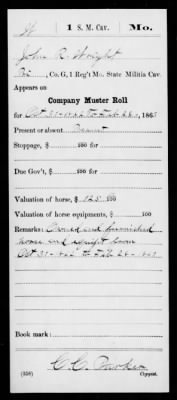 W 1 S. M. Cav. Mo.
John R. Wright
, Co. G, 1 Reg't Mo. State Militia Cav.
Appears on
Company Muster Roll
for Oct 31-1862 to Feb 28, 1863
Present or absent Present
Stoppage, $ 100 for
Due Gov't, $ 100 for
Valuation of horse, $ 125 100
Valuation of horse equipments, $ 100
Remarks: Owned and furnished
horse and equipt from
Oct 31-1862 to Feb 28-1863
Book mark:
(358) Copyist.